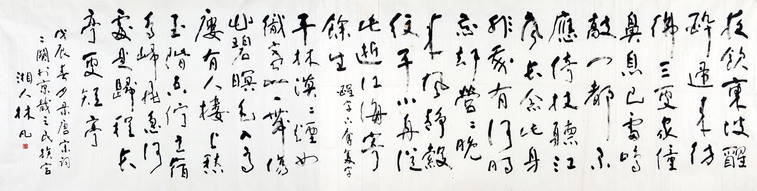 夜飲東坡醒
醉歸來彷
彿三更家僮
鼻息已雷鳴
敲門都不
應倚杖聽江
聲長
此身
非我有何時
忘卻營〻
來風靜縠
紋平小舟從
此逝江海寄
餘生
平林漠〻煙如
織寒山一帶傷
心碧暝色入高
樓有人樓上愁
玉階空佇立宿
鳥歸飛急何
處是歸程長
亭更短亭
戊辰春日录唐宋词
二闋於京
之民族宫
湘人林凡